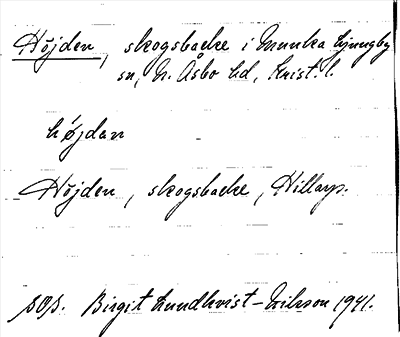 Höjden, skogsbacke i Munka Ljungby
sn, N. Åsbo hd, Krist. l.
höjdan
Höjden, skogsbacke, Hillarp.
pop. Birgit Lundkvist-Eriksson 1941.